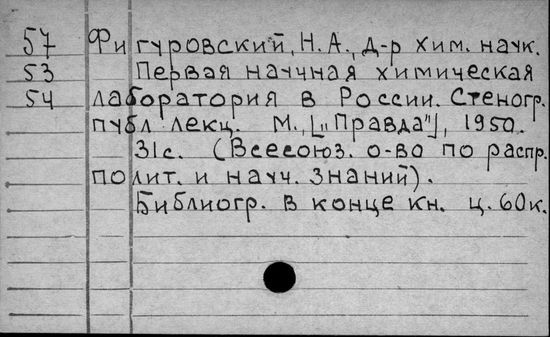 57 Фигуровский, Н.А., д-р хим. наук.
53 Первая научная химическая
54 лаборатория в России. Стеногр.
публ лекц. М., [„Правда"], 1950.
31с. (Всесоюз. о-во по распр.
полит. и науч. знаний).
Библиогр. в конце кн. ц. 60к.